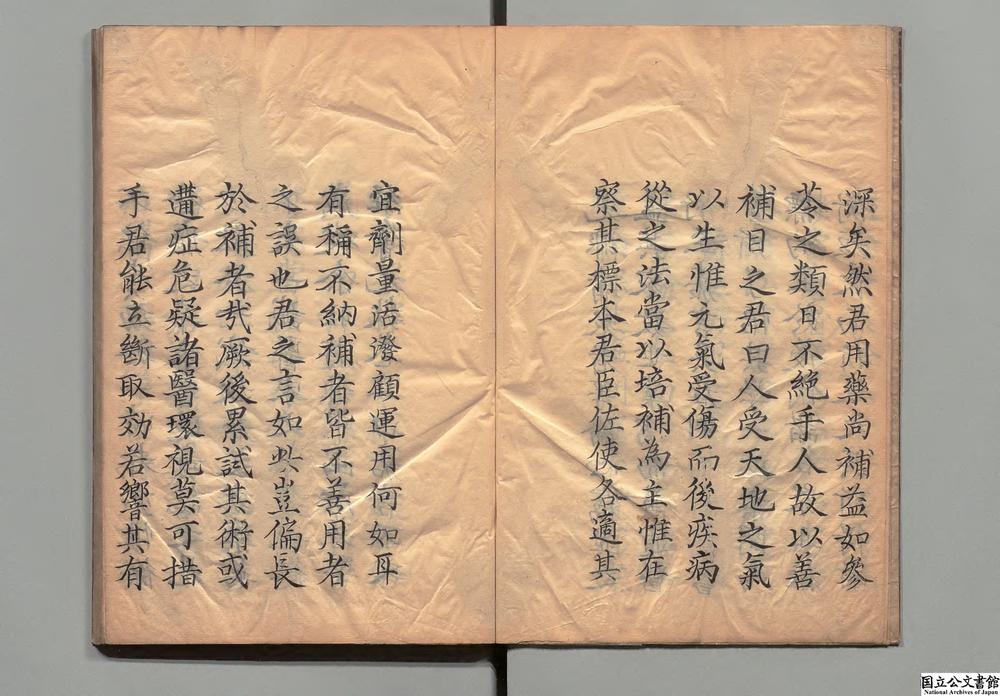 深矣然君用藥尚補益如參
苓之類日不絶手人故以善
補目之君曰人受天地之氣
以生惟元氣受傷而後疾病
從之法當以培補為主惟在
察其標本君臣佐使各適其
宜劑量活潑顧運用何如耳
有稱不納補者皆不善用者
之誤也君之言如此豈偏長
於補者㢤厥後累試其術或
遘症危疑諸醫環視莫可措
手君能立斷取効若響其有
国立公文書館
National Archives of Japan